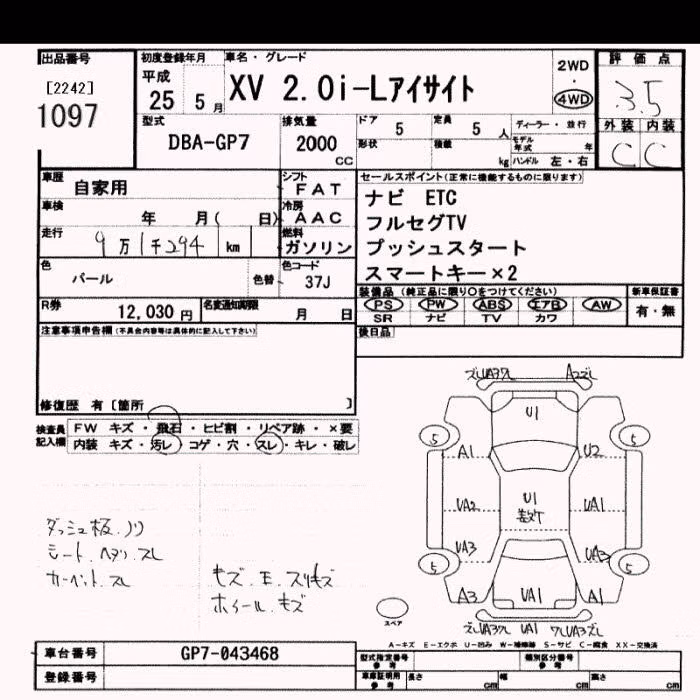 出品番号 初度登録年月 車名・グレード 2WD 評価点
[2242] 平成 XV 2.0i-Lアイサイト 4WD 3.5
1097 25 5月
型式 排気量 ドア 5 定員 5人 ディーラー・並行 外装 内装
DBA-GP7 2000 CC 形状 積載 kg モデル年式 年 C C
ハンドル 左・右
車歴 自家用 シフト FAT セールスポイント(正常に機能するものに限ります)
車検 年 月( 日) 冷房 AAC ナビ ETC
走行 9万1千294 km 燃料 ガソリン フルセグTV
色 パール 色替 色コード 37J プッシュスタート
スマートキー×2
R券 12,030円 名変通知期限 月 日 装備品(純正品に限り○をつけてください) 新車保証書
PS PW ABS エアB AW 有・無
SR ナビ TV カワ
注意事項申告欄(不具合内容等は具体的に記入して下さい) 後日品
修復歴 有[箇所 ]
検査員記入欄 FW キズ・飛石・ヒビ割・リペア跡・×要
内装 キズ・汚レ・コゲ・穴・スレ・キレ・破レ
ダッシュ板.ノリ
シート.ヘタリ.スレ
カーペット.スレ
キズ.E.スリキズ
ホイール.キズ
ズレUA3ワレ A2ズレ
U1
5 5
A1 U2
UA2 U1 UA1
UA3 UA3
5 5
A3 UA1 A1
スペア ズレUA3ワレ UA1 ワレUA3ズレ
A-キズ E-エクボ U-凹み W-補修跡 S-サビ C-腐食 XX-交換済
車台番号 GP7-043468 型式指定番号 参考 類別区分番号 参考
登録番号 車庫証明用 参考 長さ cm 幅 cm 高さ cm